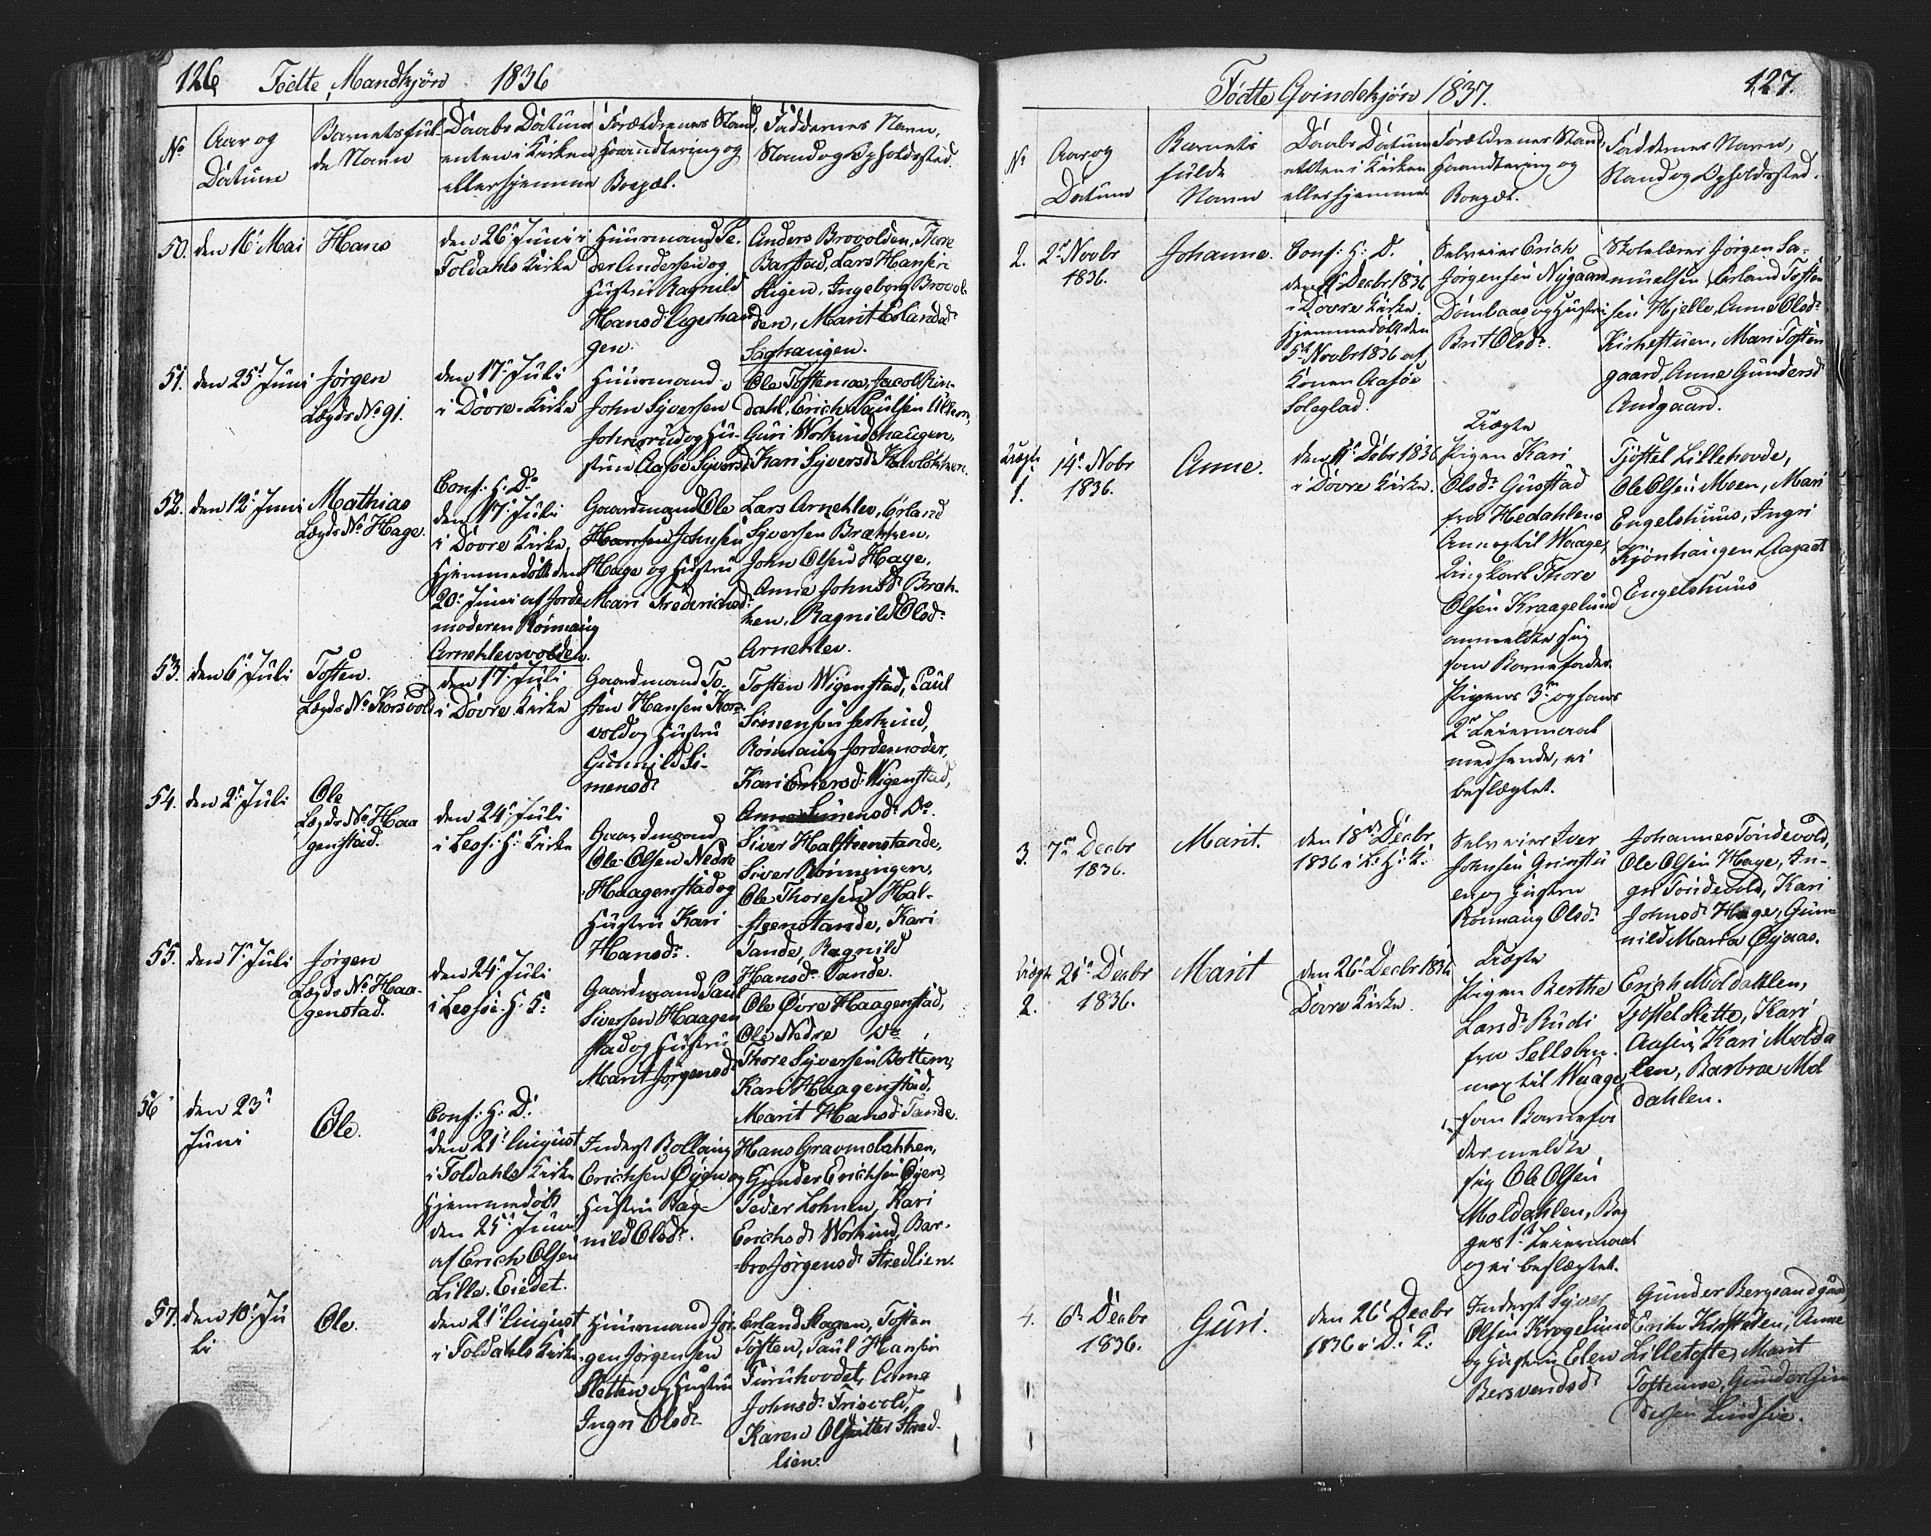 126 Födte, Mandkjön 1836
No
Aar og
Datum
Barnets ful-
de Navn
Daabs Datum
enten i Kirken
eller hjemme
Forældrenes Stand,
Haandtering og
Bopæl.
Faddernes Navn,
Stand og Opholdssted.
50. den 16d Mai Hans
den 26d Juni i
Foldahls Kirke
Huusmand Pe-
der Andersen og
Hustrue Ragnild
Hansd. Agerhau
gen.
Anders Brovolden, Thore
Barstad, Lars Hansen
Stigen, Ingeborg Brovol
den, Marit Erlandsd.
Saghaugen.
51. den 25d Juni Jörgen
Lægds No 91.
den 17d Juli
i Dovre Kirke
Huusmand
John Syversen
Johnsrud og Hu-
strue Aasöe Syversd
Ole Toftemoe, Jacob Lin-
dahl, Erich Paulsen
Guri Workindshaugen,
Kari Syversd.
52. den 12d Juni Mathias
Lægds No Hage.
Conf: H: D:
den 17d Juli
i Dovre Kirke,
Hjemmedöbt den
20d Juni af Jorde
moderen Rönnaug
Arnehlevsvolden.
Gaardmand Ole
Hansen Johnsen
Hage og Hustrue
Mari Frederichsd.
Lars Arnehlev, Erland
Syversen Brækken,
John Olsen Hage,
Anne Johnsd. Bræk-
ken, Ragnild Olsd.
Arnehlev.
53. den 6d Juli Tosten.
Lægds No Korsvold
den 17d Juli
i Dovre Kirke
Gaardmand To-
sten Hansen Kors
vold og Hustrue
Gunnild Si-
mensd.
Tosten Wigenstad, Paul
Simensen Hjerkind,
Rönnaug Jordemoder,
Kari Einersd. Wigenstad,
Anne Simensd. Do.
54. den 2d Juli Ole
Lægds No Haa
genstad.
den 24d Juli
i Less: H: Kirke
Gaardmand
Ole Olsen Nedre
Haagenstad og
Hustrue Kari
Hansd.
Siver Halstenstande,
Siver Rönningen,
Ole Thoresen Hal-
stenstande, Kari
Tande, Ragnild
Hansd. Tande.
55. den 7d Juli Jörgen
Lægds No Haa-
genstad.
den 24d Juli
i Lessöe H: K:
Gaardmand Paul
Siversen Haagen
stad og Hustrue
Marit Jörgensd.
Ole Övre Haagenstad,
Ole Nedre Do
Thore Syversen Bottem,
Kari Haagenstad,
Marit Hansd. Tande.
56 den 23d
Juni
Ole.
Conf: H: D:
den 21d August
i Foldahls Kirke
Hjemmedöbt
den 25d Juni
af Erich Olsen
Lille-Eiedet.
Inderst Rollaug
Erichsen Öyen og
Hustrue Rag-
nild Olsd.
Hans Gravmolakken,
Gunder Erichsen Öyen,
Peder Lohnen, Kari
Erichsd. Workind, Bar-
bro Jörgensd. Stredlien.
57. den 10d Ju
li
Ole.
den 21d August
i Foldahls Kirke
Huusmand Jör
gen Jörgensen
Sletten og Hustrue
Ingri Olsd.
Erland Skagen, Tosten
Toften, Paul Hansen
Furuhovdet, Anne
Johnsd. Frisvold,
Karen Olsdatter Stred-
lien.
Födte Qvindekjön 1837.
127.
No
Aar og
Datum
Barnets
fulde
Navn
Daabs Datum
enten i Kirken
eller hjemme
Forældrenes Stand,
Haandtering og
Bopæl.
Faddernes Navn,
Stand og Opholdssted.
2. 2d Novbr
1836.
Johanne.
Conf: H: D.
den 11d Decbr 1836
i Dovre Kirke.
Hjemmedöbt den
5d Novbr 1836 af
Konen Aasöe
Soleglad.
Selveier Erich
Jörgensen Nygaard
Dombaas og Hustrue
Brit Olsd.
Skolelærer Jörgen Sa-
muelsen, Erland Tosten
sen Hjelle, Anne Olsd.
Kirkestuen, Mari Tosten
gaard, Anne Gundersd
Andgaard.
Uægte
1.
14d Nobr
1836.
Anne.
den 11d Debr 1836
i Dovre Kirke.
Uægte
Pigen Kari
Olsd. Gusstad
fra Hedahlens
Annex til Waage,
Ungkarl Thore
Olsen Kraagelund
anmeldte sig
som Barnefader
Pigens 3die og hans
2d Leiermaal
med hende, ei
beslægtet.
Tjöstel Lillehovde,
Ole Olsen Moen, Mari
Engelshuus, Ingri
Kjönhaugen, Aagaat
Engelshuus
3. 7de Decbr
1836.
Marit.
den 18d Decbr
1836 i L: H: K:
Selveier Iver
Johnsen Grinstu
en og Hustrue
Rönnaug Olsd.
Johannes Tondevold,
Ole Olsen Hage, In-
gri Tondevold, Kari
Johnsd Hage, Gun-
nild Maria Öynaas.
Uægte
2.
21d Decbr
1836.
Marit
den 26d Decbr 1836
Dovre Kirke.
Uægte
Pigen Berthe
Larsd. Rudi
fra Sells An-
nex til Waage,
som Barnefa
der meldte
sig Ole Olsen
Moldahlen, Beg
ges 1ste Leiermaal
og ei beslægtet.
Erich Moldahlen,
Tjostel Slette, Kari
Aasen, Kari Molda
len, Barbroe Mol
dahlen.
4. 6d Decbr
1836.
Guri.
den 26d Decbr
1836 i D: K:
Inderst Syver
Olsen Krogelund
og Hustrue Elen
Bersvendsd
Gunder Bergsandgaard
Erik Kirkestuen, Anne
Lilletofte, Marit
Toftemoe, Gunder
Lindsöe.